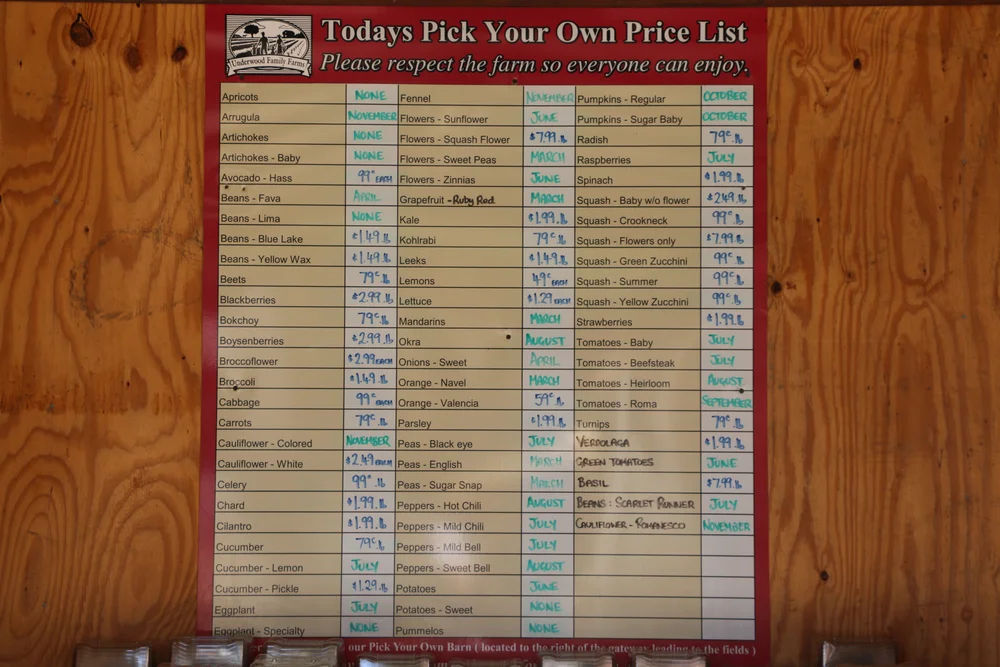 Todays Pick Your Own Price List
Underwood Family Farms
Please respect the farm so everyone can enjoy.
Apricots NONE Fennel NOVEMBER Pumpkins - Regular OCTOBER
Arrugula NOVEMBER Flowers - Sunflower JUNE Pumpkins - Sugar Baby OCTOBER
Artichokes NONE Flowers - Squash Flower $7.99.lb Radish 79¢.lb
Artichokes - Baby NONE Flowers - Sweet Peas MARCH Raspberries JULY
Avocado - Hass 99¢ EACH Flowers - Zinnias JUNE Spinach $1.99.lb
Beans - Fava APRIL Grapefruit - Ruby Red MARCH Squash - Baby w/o flower $2.49.lb
Beans - Lima NONE Kale $1.99.lb Squash - Crookneck 99¢.lb
Beans - Blue Lake $1.49.lb Kohlrabi 79¢.lb Squash - Flowers only $7.99.lb
Beans - Yellow Wax $1.49.lb Leeks $1.49.lb Squash - Green Zucchini 99¢.lb
Beets 79¢.lb Lemons 49¢ EACH Squash - Summer 99¢.lb
Blackberries $2.99.lb Lettuce $1.29 EACH Squash - Yellow Zucchini 99¢.lb
Bokchoy 79¢.lb Mandarins MARCH Strawberries $1.99.lb
Boysenberries $2.99.lb Okra AUGUST Tomatoes - Baby JULY
Broccoflower $2.99 EACH Onions - Sweet APRIL Tomatoes - Beefsteak JULY
Broccoli $1.49.lb Orange - Navel MARCH Tomatoes - Heirloom AUGUST
Cabbage 99¢ EACH Orange - Valencia 59¢.lb Tomatoes - Roma SEPTEMBER
Carrots 79¢.lb Parsley $1.99.lb Turnips 79¢.lb
Cauliflower - Colored NOVEMBER Peas - Black eye JULY VERDOLAGA $1.99.lb
Cauliflower - White $2.49 EACH Peas - English MARCH GREEN TOMATOES JUNE
Celery 99¢.lb Peas - Sugar Snap MARCH BASIL $7.99.lb
Chard $1.99.lb Peppers - Hot Chili AUGUST BEANS: SCARLET RUNNER JULY
Cilantro $1.99.lb Peppers - Mild Chili JULY CAULIFLOWER - ROMANESCO NOVEMBER
Cucumber 79¢.lb Peppers - Mild Bell JULY
Cucumber - Lemon JULY Peppers - Sweet Bell AUGUST
Cucumber - Pickle $1.29.lb Potatoes JUNE
Eggplant JULY Potatoes - Sweet NONE
Eggplant - Specialty NONE Pummelos NONE
our Pick Your Own Barn ( located to the right of the gateway leading to the fields )